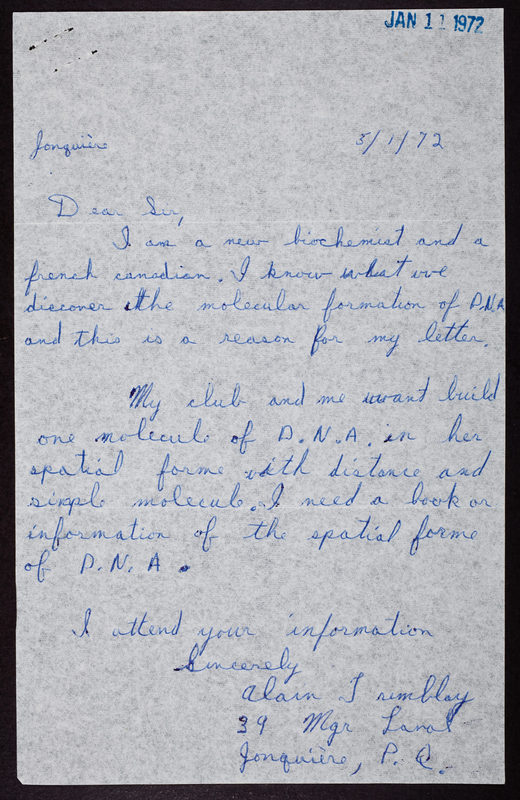 JAN 11 1972
Jonquière 5/1/72
Dear Sir,
I am a new biochemist and a
french canadian. I know what we
discover the molecular formation of D.N.A
and this is a reason for my letter.
My club and me want build
one molecule of D.N.A. in her
spatial forme with distance and
simple molecule. I need a book or
information of the spatial forme
of D.N.A.
I attend your information
Sincerely
Alain Tremblay
39 Mgr Laval
Jonquière, P.Q.